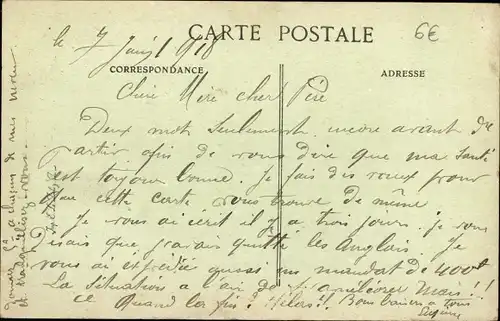 CARTE POSTALE
6€
le 7 1918
CORRESPONDANCE
ADRESSE
Chère Mère cher Père
Deux mot seulement encore avant de
partir afin de vous dire que ma santé
est toujour bonne. Je fais des vœux pour
que cette carte vous trouve de même
Je vous ai écrit il y a trois jours. je vous
Disais que j'avais quitté les Anglais. Je
vous ai expédié aussi un mandat de 400f
La situation a l'air de s'améliorer Mais!!
Quand la fin? Hélas!! Bons baisers a tous
a chacun de mes
et